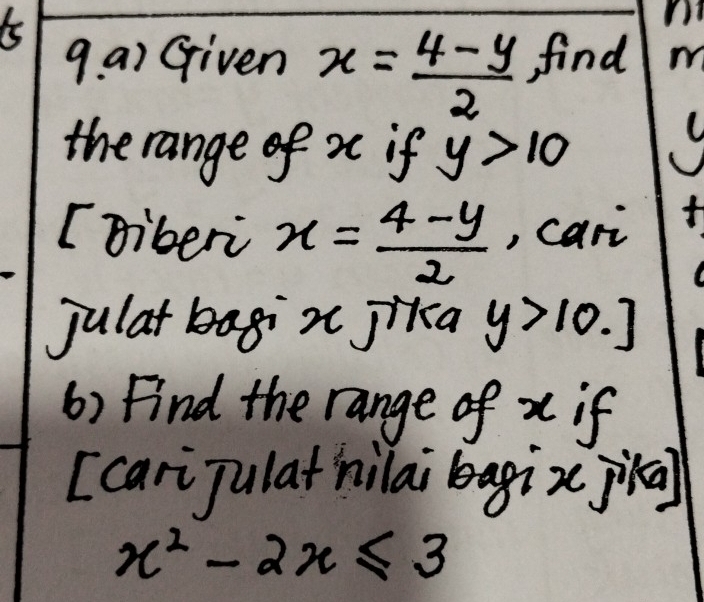 9.a) Given x = \frac{4-y}{2}, find
the range of x if y > 10
[Diberi x = \frac{4-y}{2}, cari
julat bagi x jika y > 10.]
b) Find the range of x if
[cari julat nilai bagi x jika]
x² - 2x ⩽ 3